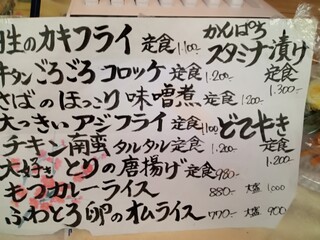 生のカキフライ 定食 1.100-
牛タンごろごろ コロッケ 定食 1.200-
さばのほっこり 味噌煮 定食
大っきい アジフライ 定食 1.100
チキン南蛮 タルタル 定食 1.200-
大好き とりの唐揚げ 定食 980-
もつカレーライス 880- 大盛 1.000
ふわとろ卵のオムライス 770- 大盛 900-
かんぱち
スタミナ漬け
定食
1.300-
どてやき
定食
1.200-